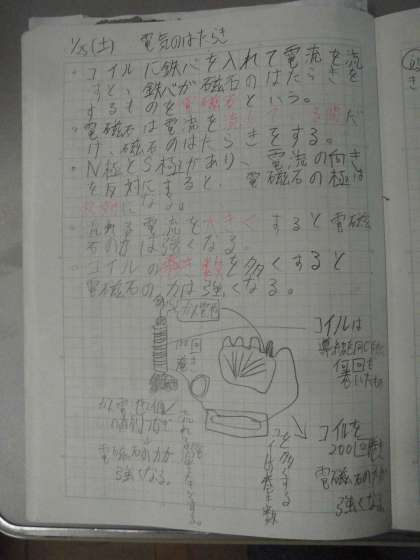 1/25(土) 電気のはたらき
・コイルに鉄心を入れて電流を流
すと、鉄心が磁石のはたらきを
するものを電磁石という。
・電磁石は電流を流している間だ
け、磁石のはたらきをする。
・N極とS極があり、電流の向き
を反対にすると、電磁石の極は
反対になる。
・流れる電流を大きくすると電磁
石の力は強くなる。
・コイルの巻き数を多くすると
電磁石の力は強くなる。
コイルは
導線を同じ向きに
何回も
まいたもの
100回
巻き
電磁石の力が
強くなる。
コイルの巻き数
を多くする
コイルを
200回巻き
電磁石の力が
強くなる